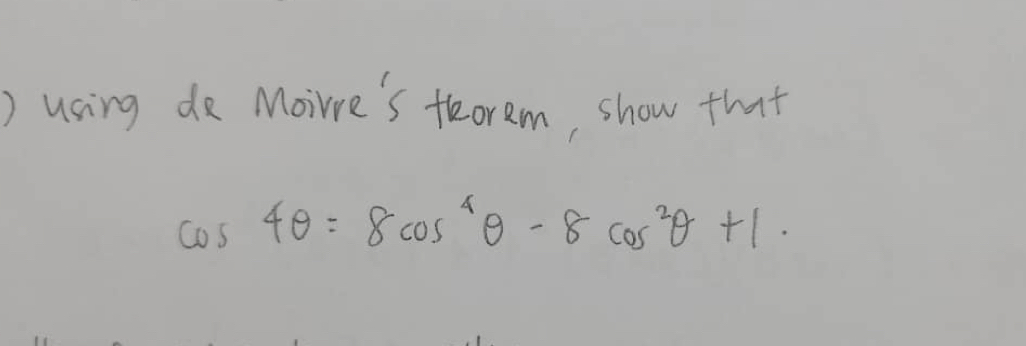 ) using de Moivre's theorem, show that
cos 4θ = 8 cos⁴θ - 8 cos²θ + 1.